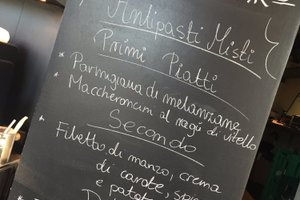 Antipasti Misti
Primi Piatti
* Parmigiana di melanzane
* Maccheroncini al ragù di vitello
Secondo
* Filetto di manzo, crema
di carote,
e patate